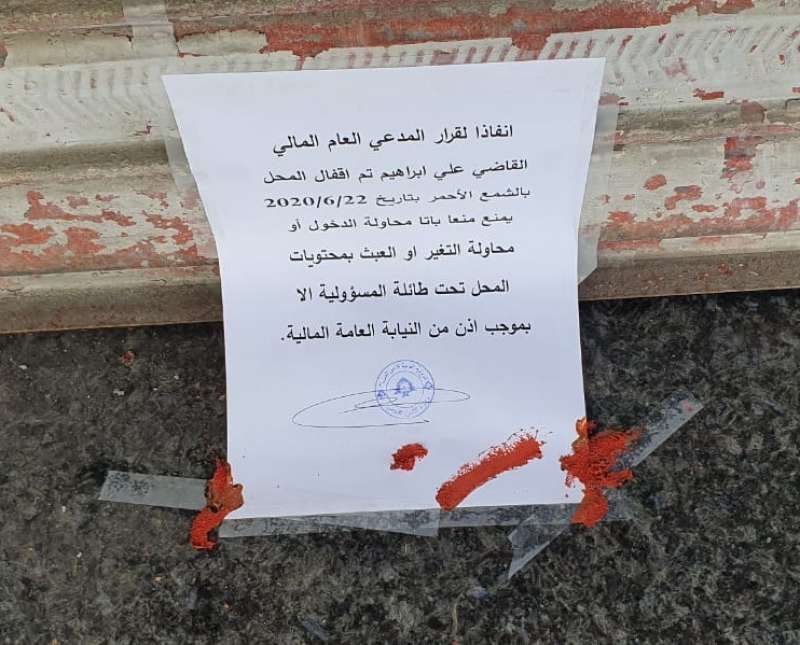 انفاذا لقرار المدعي العام المالي
القاضي علي ابراهيم تم اقفال المحل
بالشمع الأحمر بتاريخ 2020/6/22
يمنع منعا باتا محاولة الدخول أو
محاولة التغير او العبث بمحتويات
المحل تحت طائلة المسؤولية الا
بموجب اذن من النيابة العامة المالية.